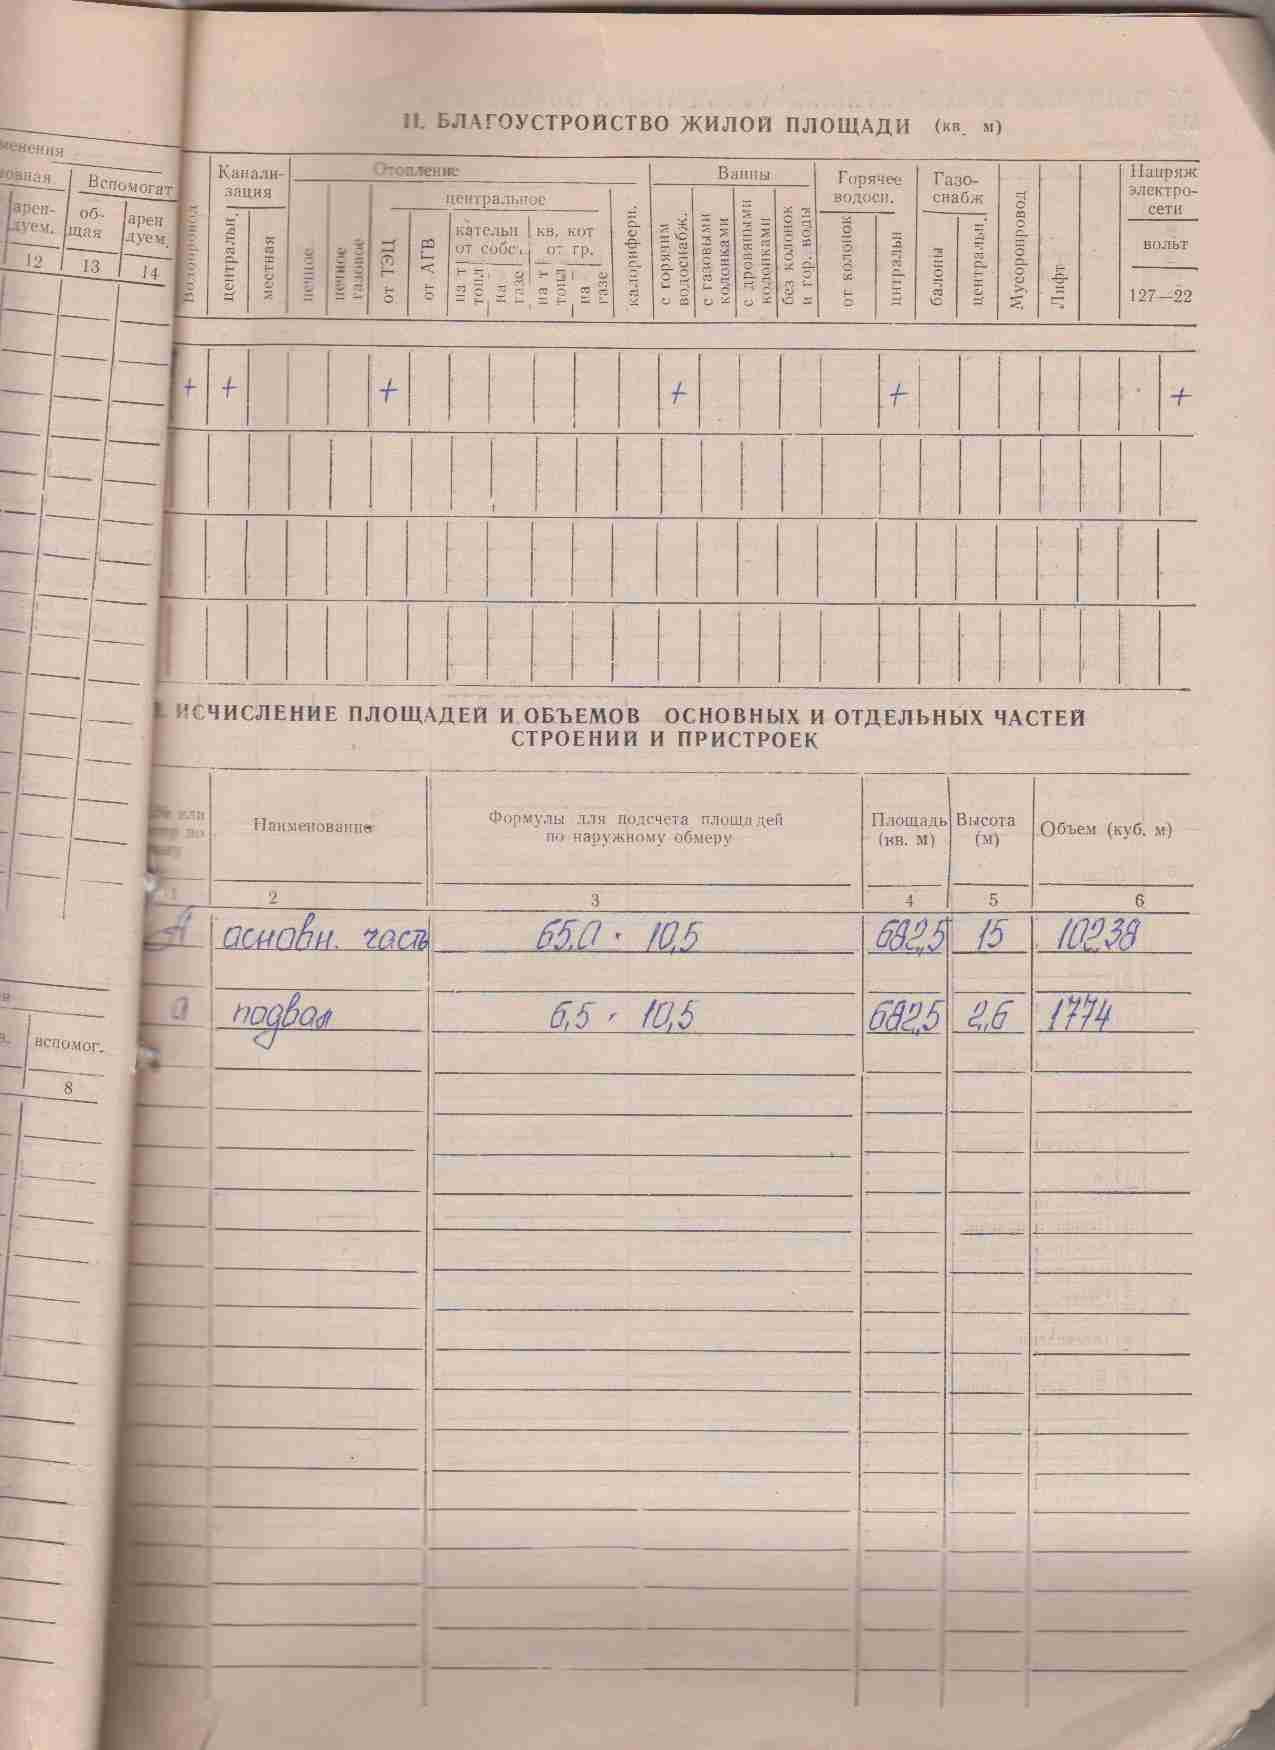 II. БЛАГОУСТРОЙСТВО ЖИЛОЙ ПЛОЩАДИ (кв. м)
менения
овная Вспомогат
арен-
дуем.
об-
щая
арен
дуем.
12 13 14
Водопровод
Канали-
зация
центральн.
местная
Отопление
печное
печное
газовое
центральное
от ТЭЦ
от АГВ
кательн
от собст.
на т
топл
на
газе
кв. кот
от гр.
на т
топл
на
газе
калориферн.
Ванны
с горячим
водоснабж.
с газовыми
колонками
с дровяными
колонками
без колонок
и гор. воды
Горячее
водосн.
от колонок
цнтральн
Газо-
снабж
балоны
центральн.
Мусоропровод
Лифт
Напряж
электро-
сети
вольт
127—22
+ + + + + +
ИСЧИСЛЕНИЕ ПЛОЩАДЕЙ И ОБЪЕМОВ ОСНОВНЫХ И ОТДЕЛЬНЫХ ЧАСТЕЙ
СТРОЕНИЙ И ПРИСТРОЕК
или
по
Наименование
Формулы для подсчета площадей
по наружному обмеру
Площадь
(кв. м)
Высота
(м)
Объем (куб. м)
1 2 3 4 5 6
А основн. часть 65,0 · 10,5 682,5 15 10238
а подвал 6,5 · 10,5 682,5 2,6 1774
вспомог.
8